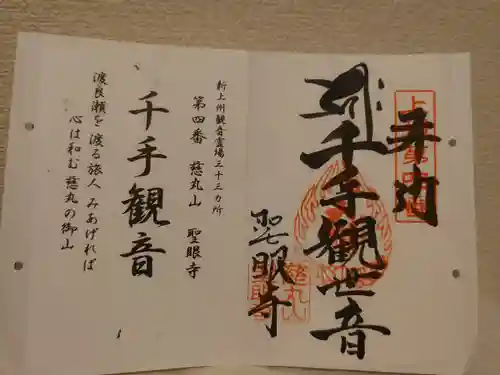 奉拝
千手観世音
聖眼寺
新上州観音霊場三十三カ所
第四番 慈丸山 聖眼寺
千手観音
渡良瀬を渡る旅人みあげれば
心は和む慈丸の御山